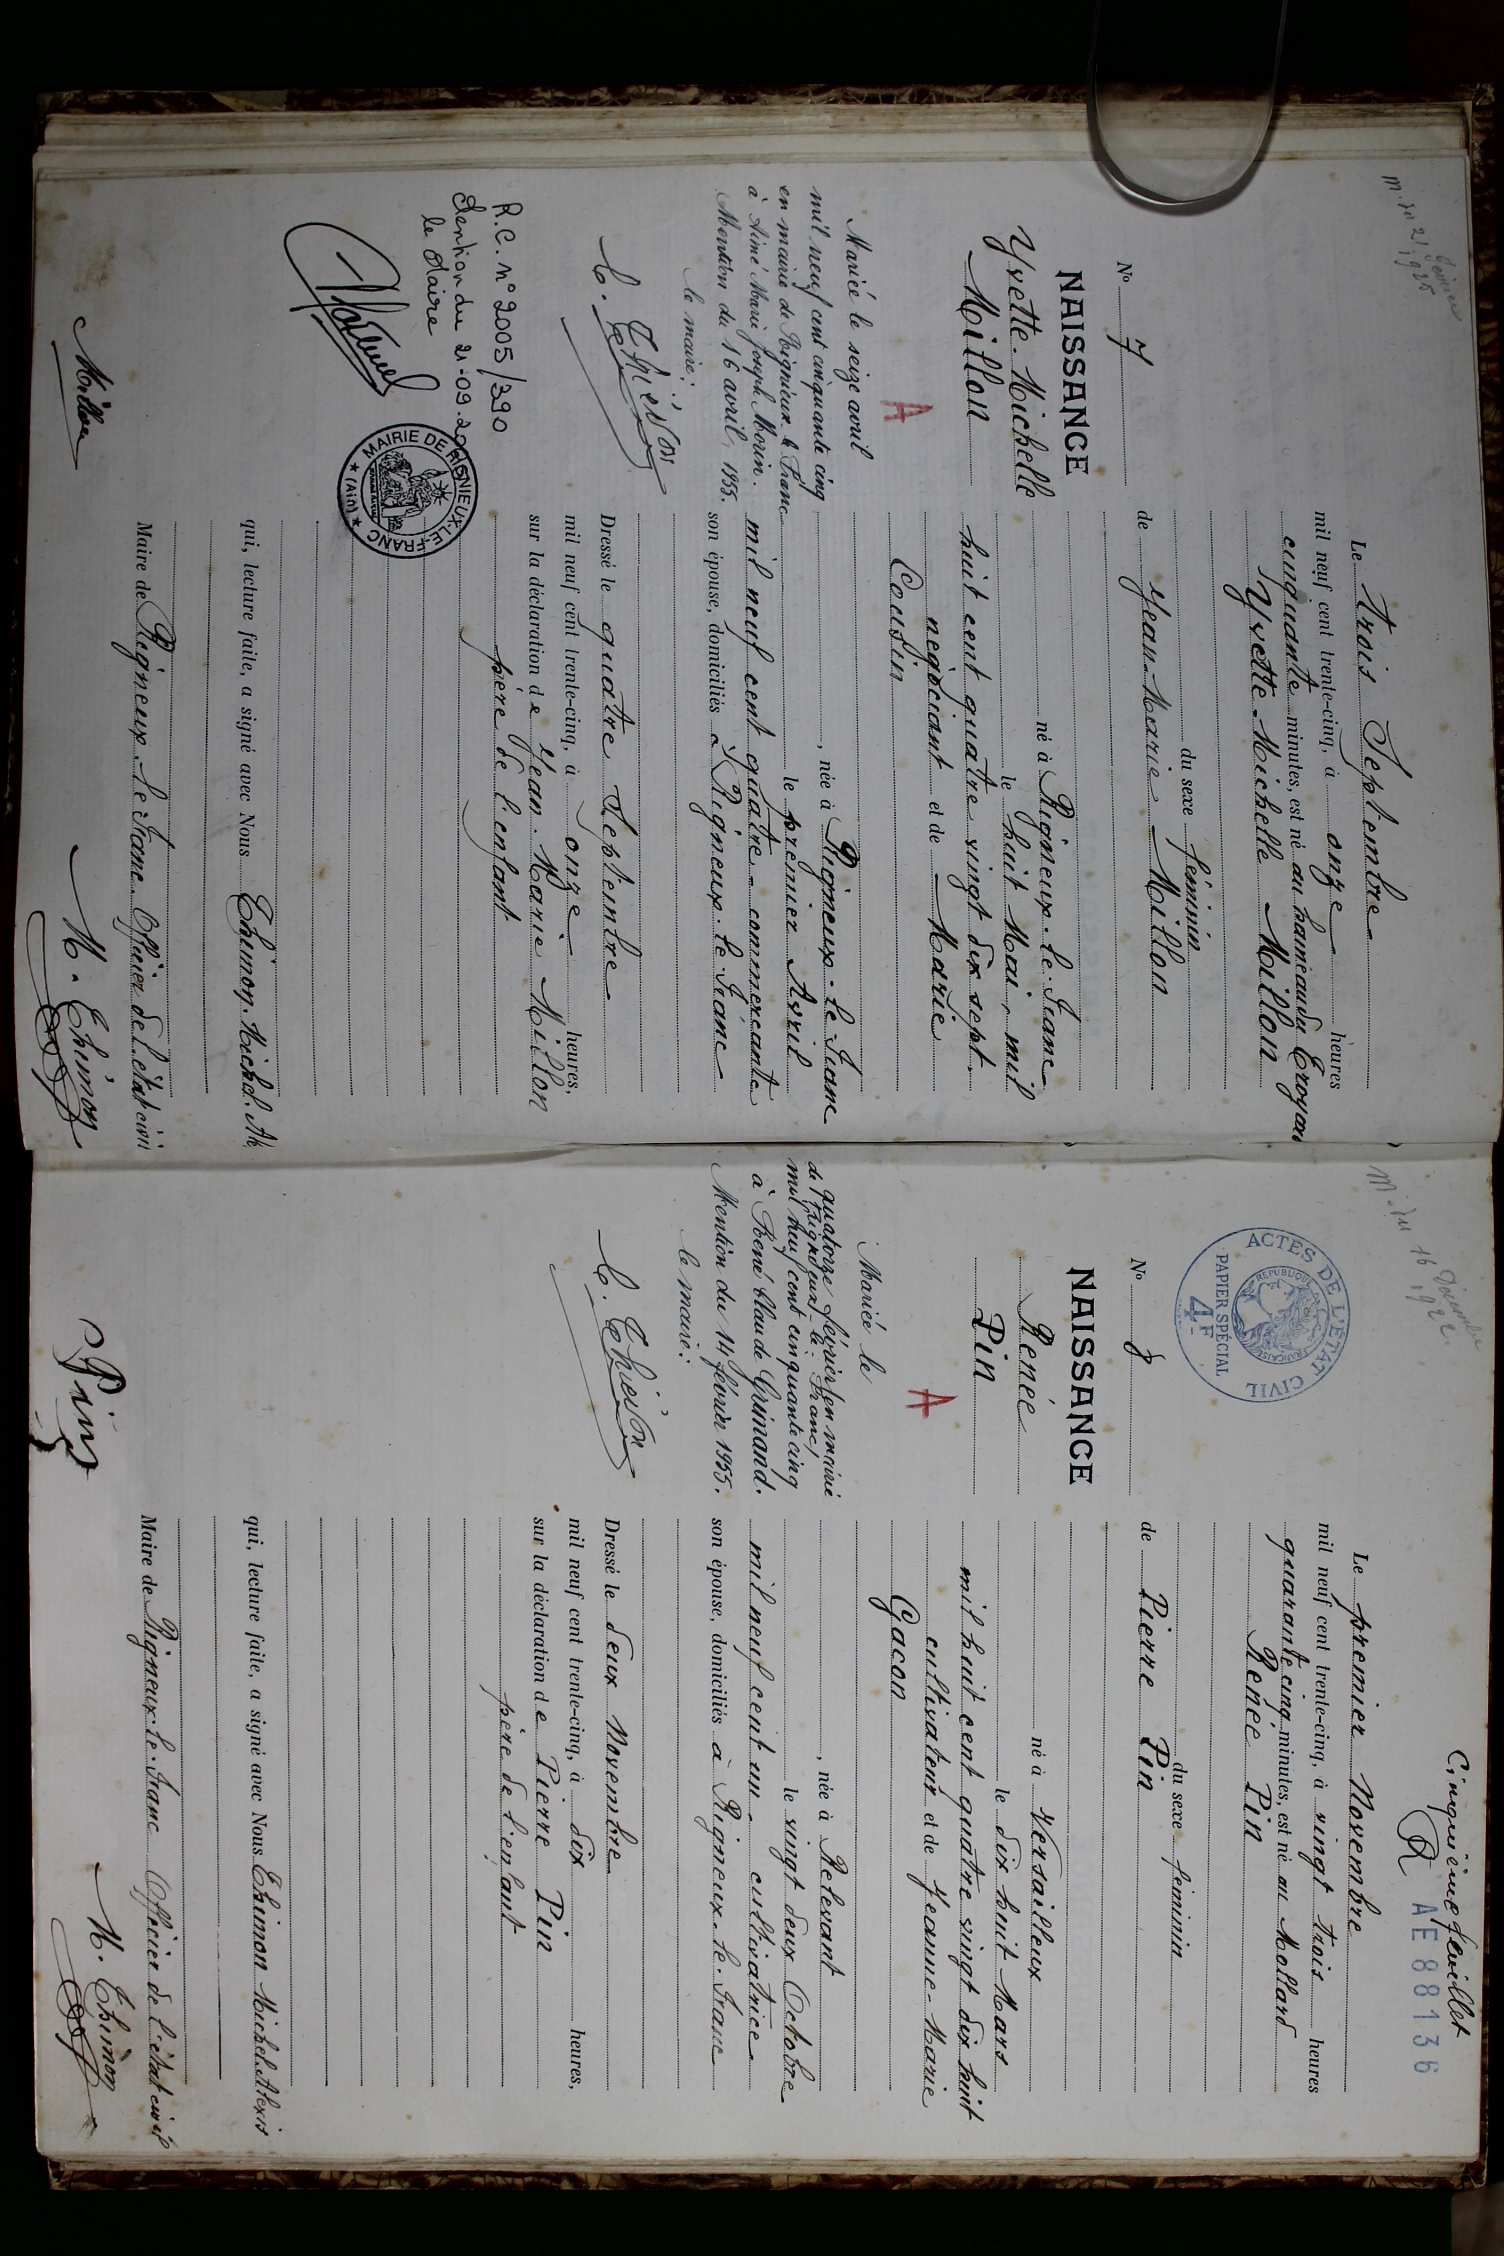 M. du 21 février
1925
N° 7
NAISSANCE
Yvette. Michelle
Millon
A
Mariée le seize avril
mil neuf cent cinquante cinq
en mairie de Rignieux le Franc
à Aimé Marie Joseph Morin.
Mention du 16 avril 1955.
le maire:
R.C. n° 2005/390
Mention du 21-09-20
le Maire
MAIRIE DE RIGNIEUX-LE-FRANC
★ (Ain) ★
Millon
Le trois Septembre
mil neuf cent trente-cinq, à onze heures
cinquante minutes, est né au hameau du
Yvette. Michelle Millon
du sexe féminin
de Jean-Marie Millon
né à Rigneux-le-Franc
le huit Mai, mil
huit cent quatre vingt dix sept.
négociant et de Marie
Cousin
, née à Rigneux-le-Franc
le premier Avril
mil neuf cent quatre - commerçante
son épouse, domiciliés à Rigneux-le-Franc
Dressé le quatre Septembre
mil neuf cent trente-cinq, à onze heures,
sur la déclaration de Jean-Marie Millon
père de l'enfant
qui, lecture faite, a signé avec Nous Thimon. Michel.
Maire de Rigneux-le-Franc Officier de l'état civil
M. Thimon
M. du 16 Décembre
192
ACTES DE L'ÉTAT CIVIL
RÉPUBLIQUE FRANÇAISE
PAPIER SPÉCIAL
4F
N° 8
NAISSANCE
Renée
Pin
A
Mariée le
quatorze février en mairie
de Rignieux le Franc,
mil neuf cent cinquante cinq
à René Claude Grimand.
Mention du 14 février 1955.
le maire:
Pin
Cinquième feuillet
AE 88136
Le premier Novembre
mil neuf cent trente-cinq, à vingt trois heures
quarante cinq minutes, est né au Mollard
Renée Pin
du sexe féminin
de Pierre Pin
né à Versailleux
le dix huit Mars
mil huit cent quatre vingt dix huit
cultivateur et de Jeanne-Marie
Gacon
, née à Relevant
le vingt deux Octobre
mil neuf cent un - cultivatrice -
son épouse, domiciliés à Rigneux-le-Franc
Dressé le deux Novembre
mil neuf cent trente-cinq, à dix heures,
sur la déclaration de Pierre Pin
père de l'enfant
qui, lecture faite, a signé avec Nous Thimon Michel. Alexis
Maire de Rigneux-le-Franc Officier de l'état civil
M. Thimon